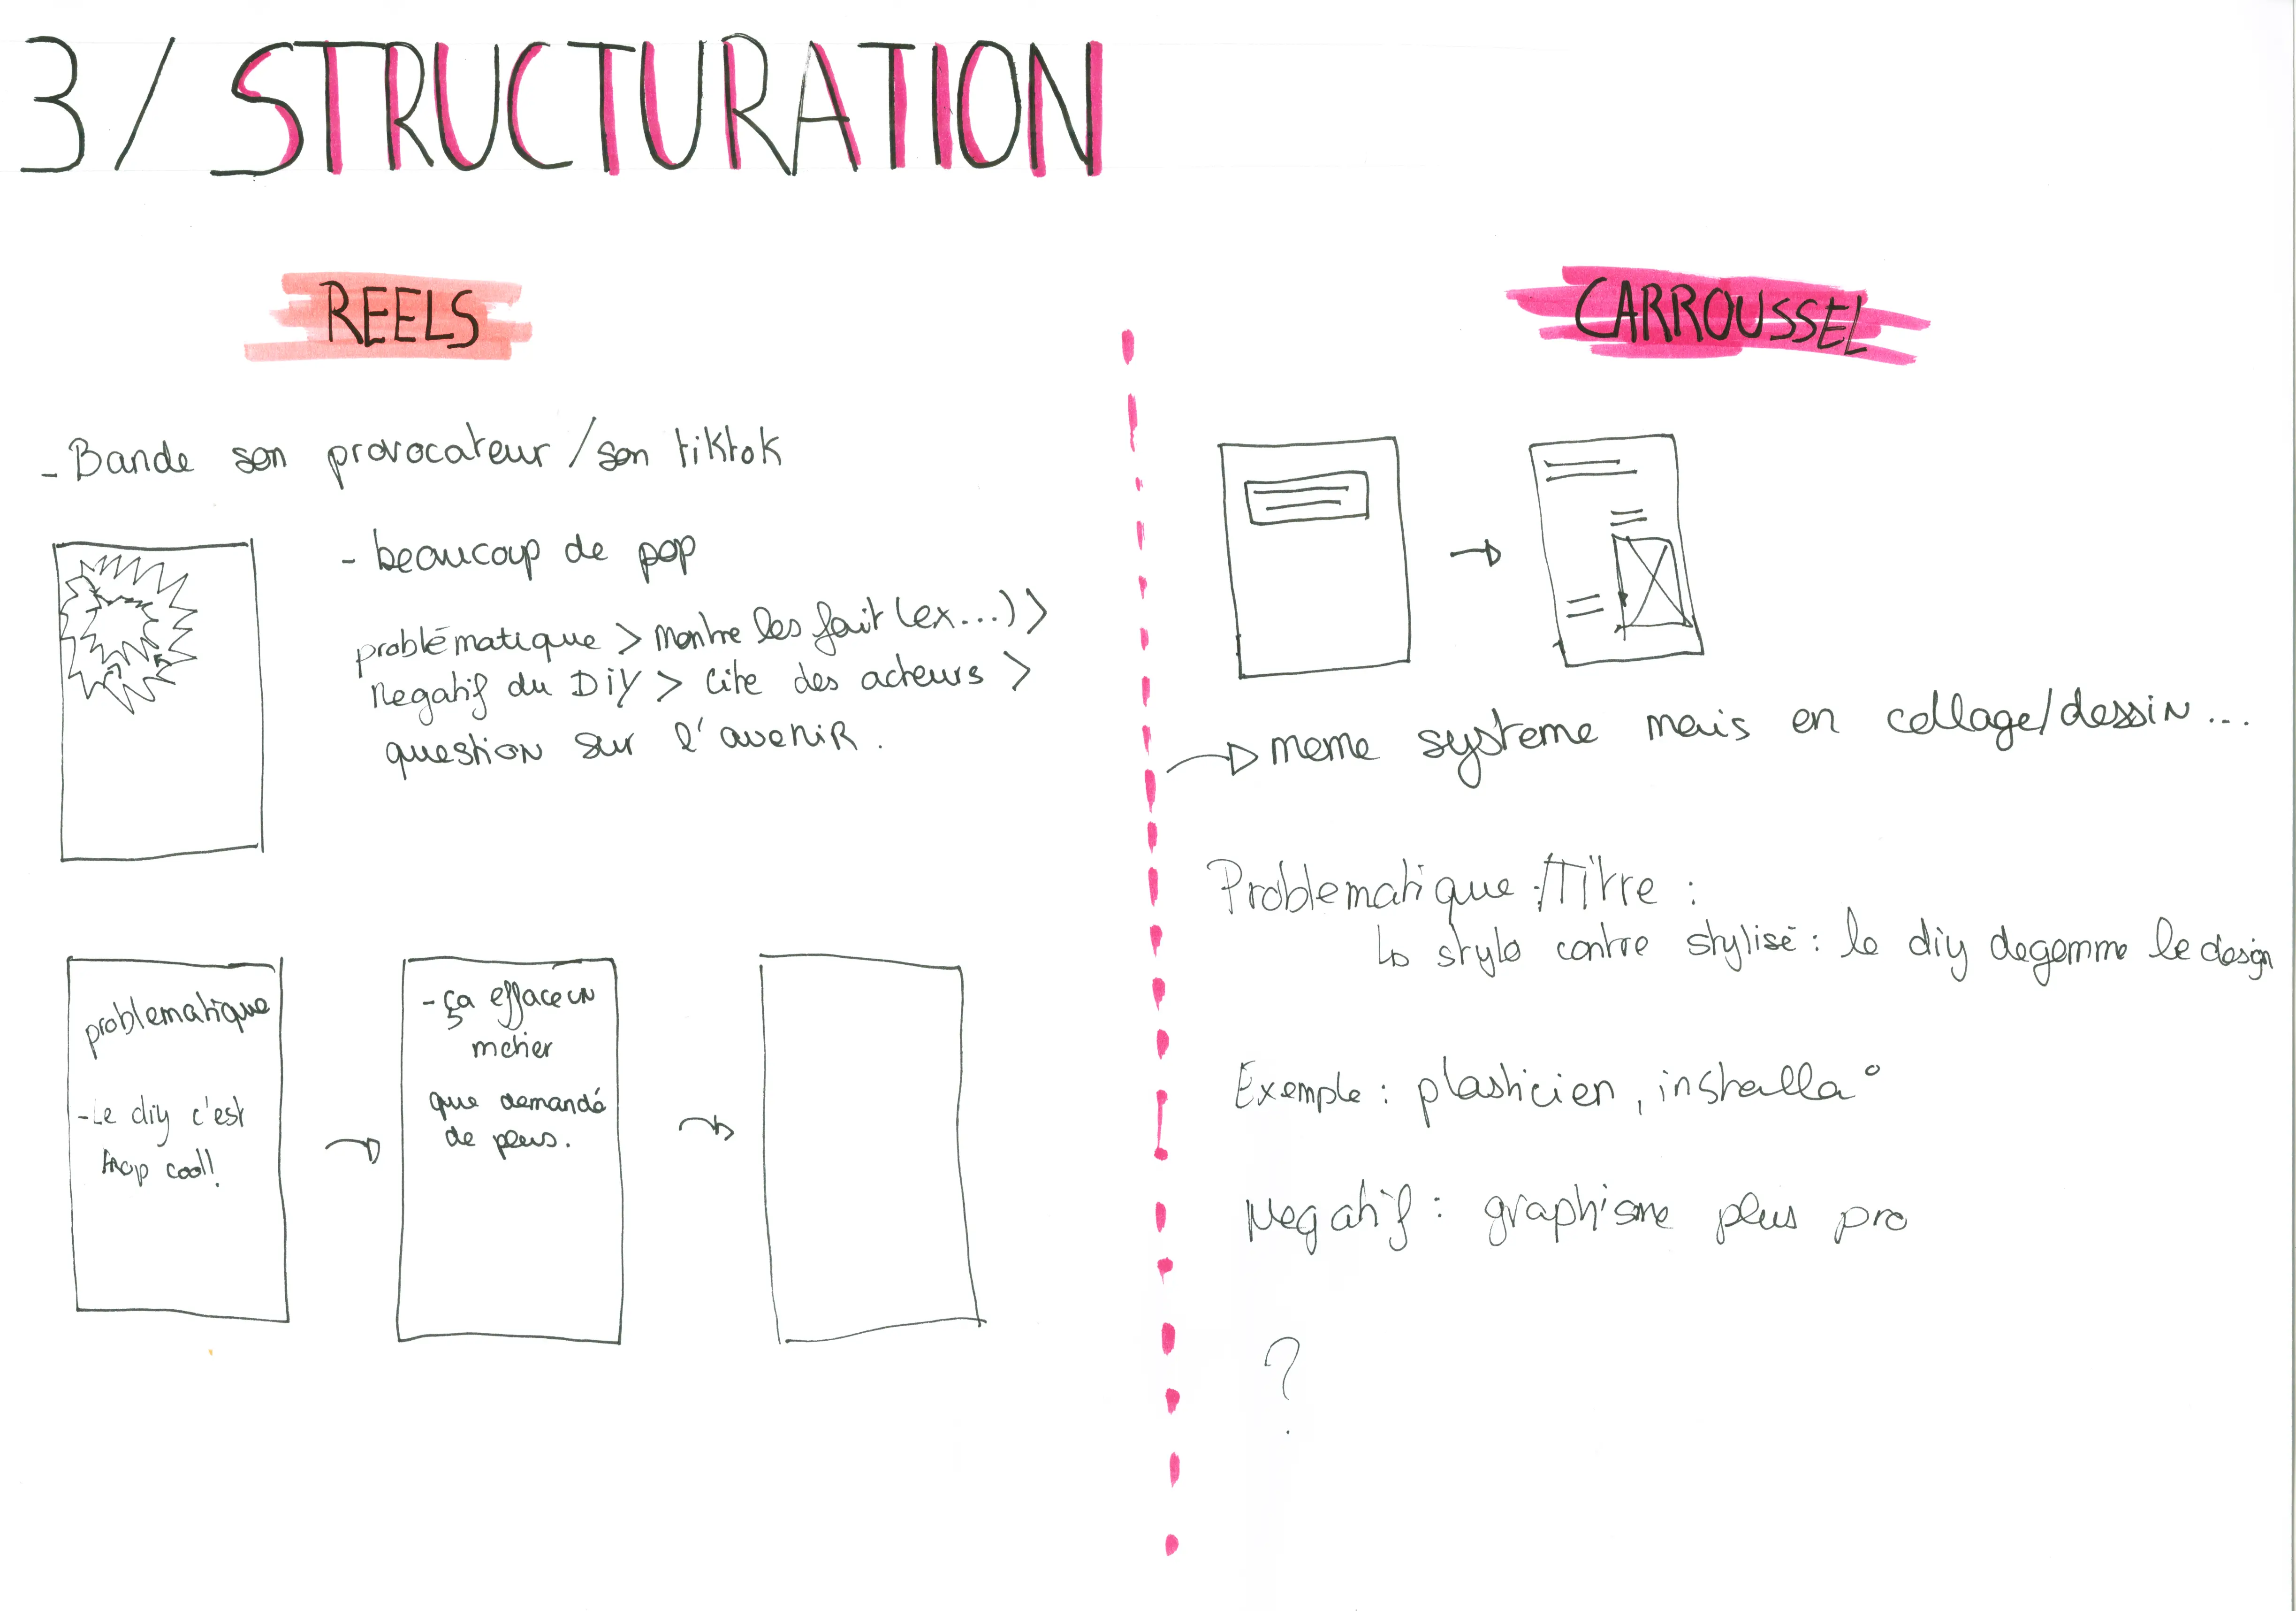 3/ STRUCTURATION
REELS
- Bande son provocateur / son tiktok
- beaucoup de pop
problématique > montre les fait (ex...) >
negatif du DiY > cite des acteurs >
question sur l'avenir.
problematique
- Le diy c'est
trop cool!
- ça efface un
metier
que demandé
de plus.
CARROUSSEL
meme systeme mais en collage/dessin...
Problematique :/Titre :
stylo contre stylisé : le diy degomme le design
Exemple : plasticien, installa°
Negatif : graphisme plus pro
?